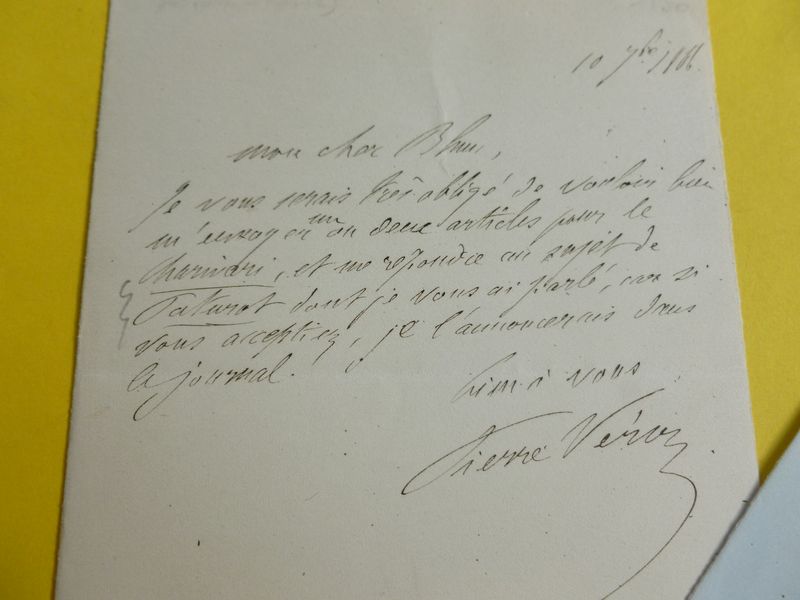 10 7bre 1866.
mon cher Blum,
Je vous serais très obligé de vouloir bien
m'envoyer un ou deux articles pour le
Charivari, et me repondre au sujet de
Paturot dont je vous ai parlé, car si
vous acceptiez, je l'annoncerais dans
le journal.
bien à vous
Pierre Véron